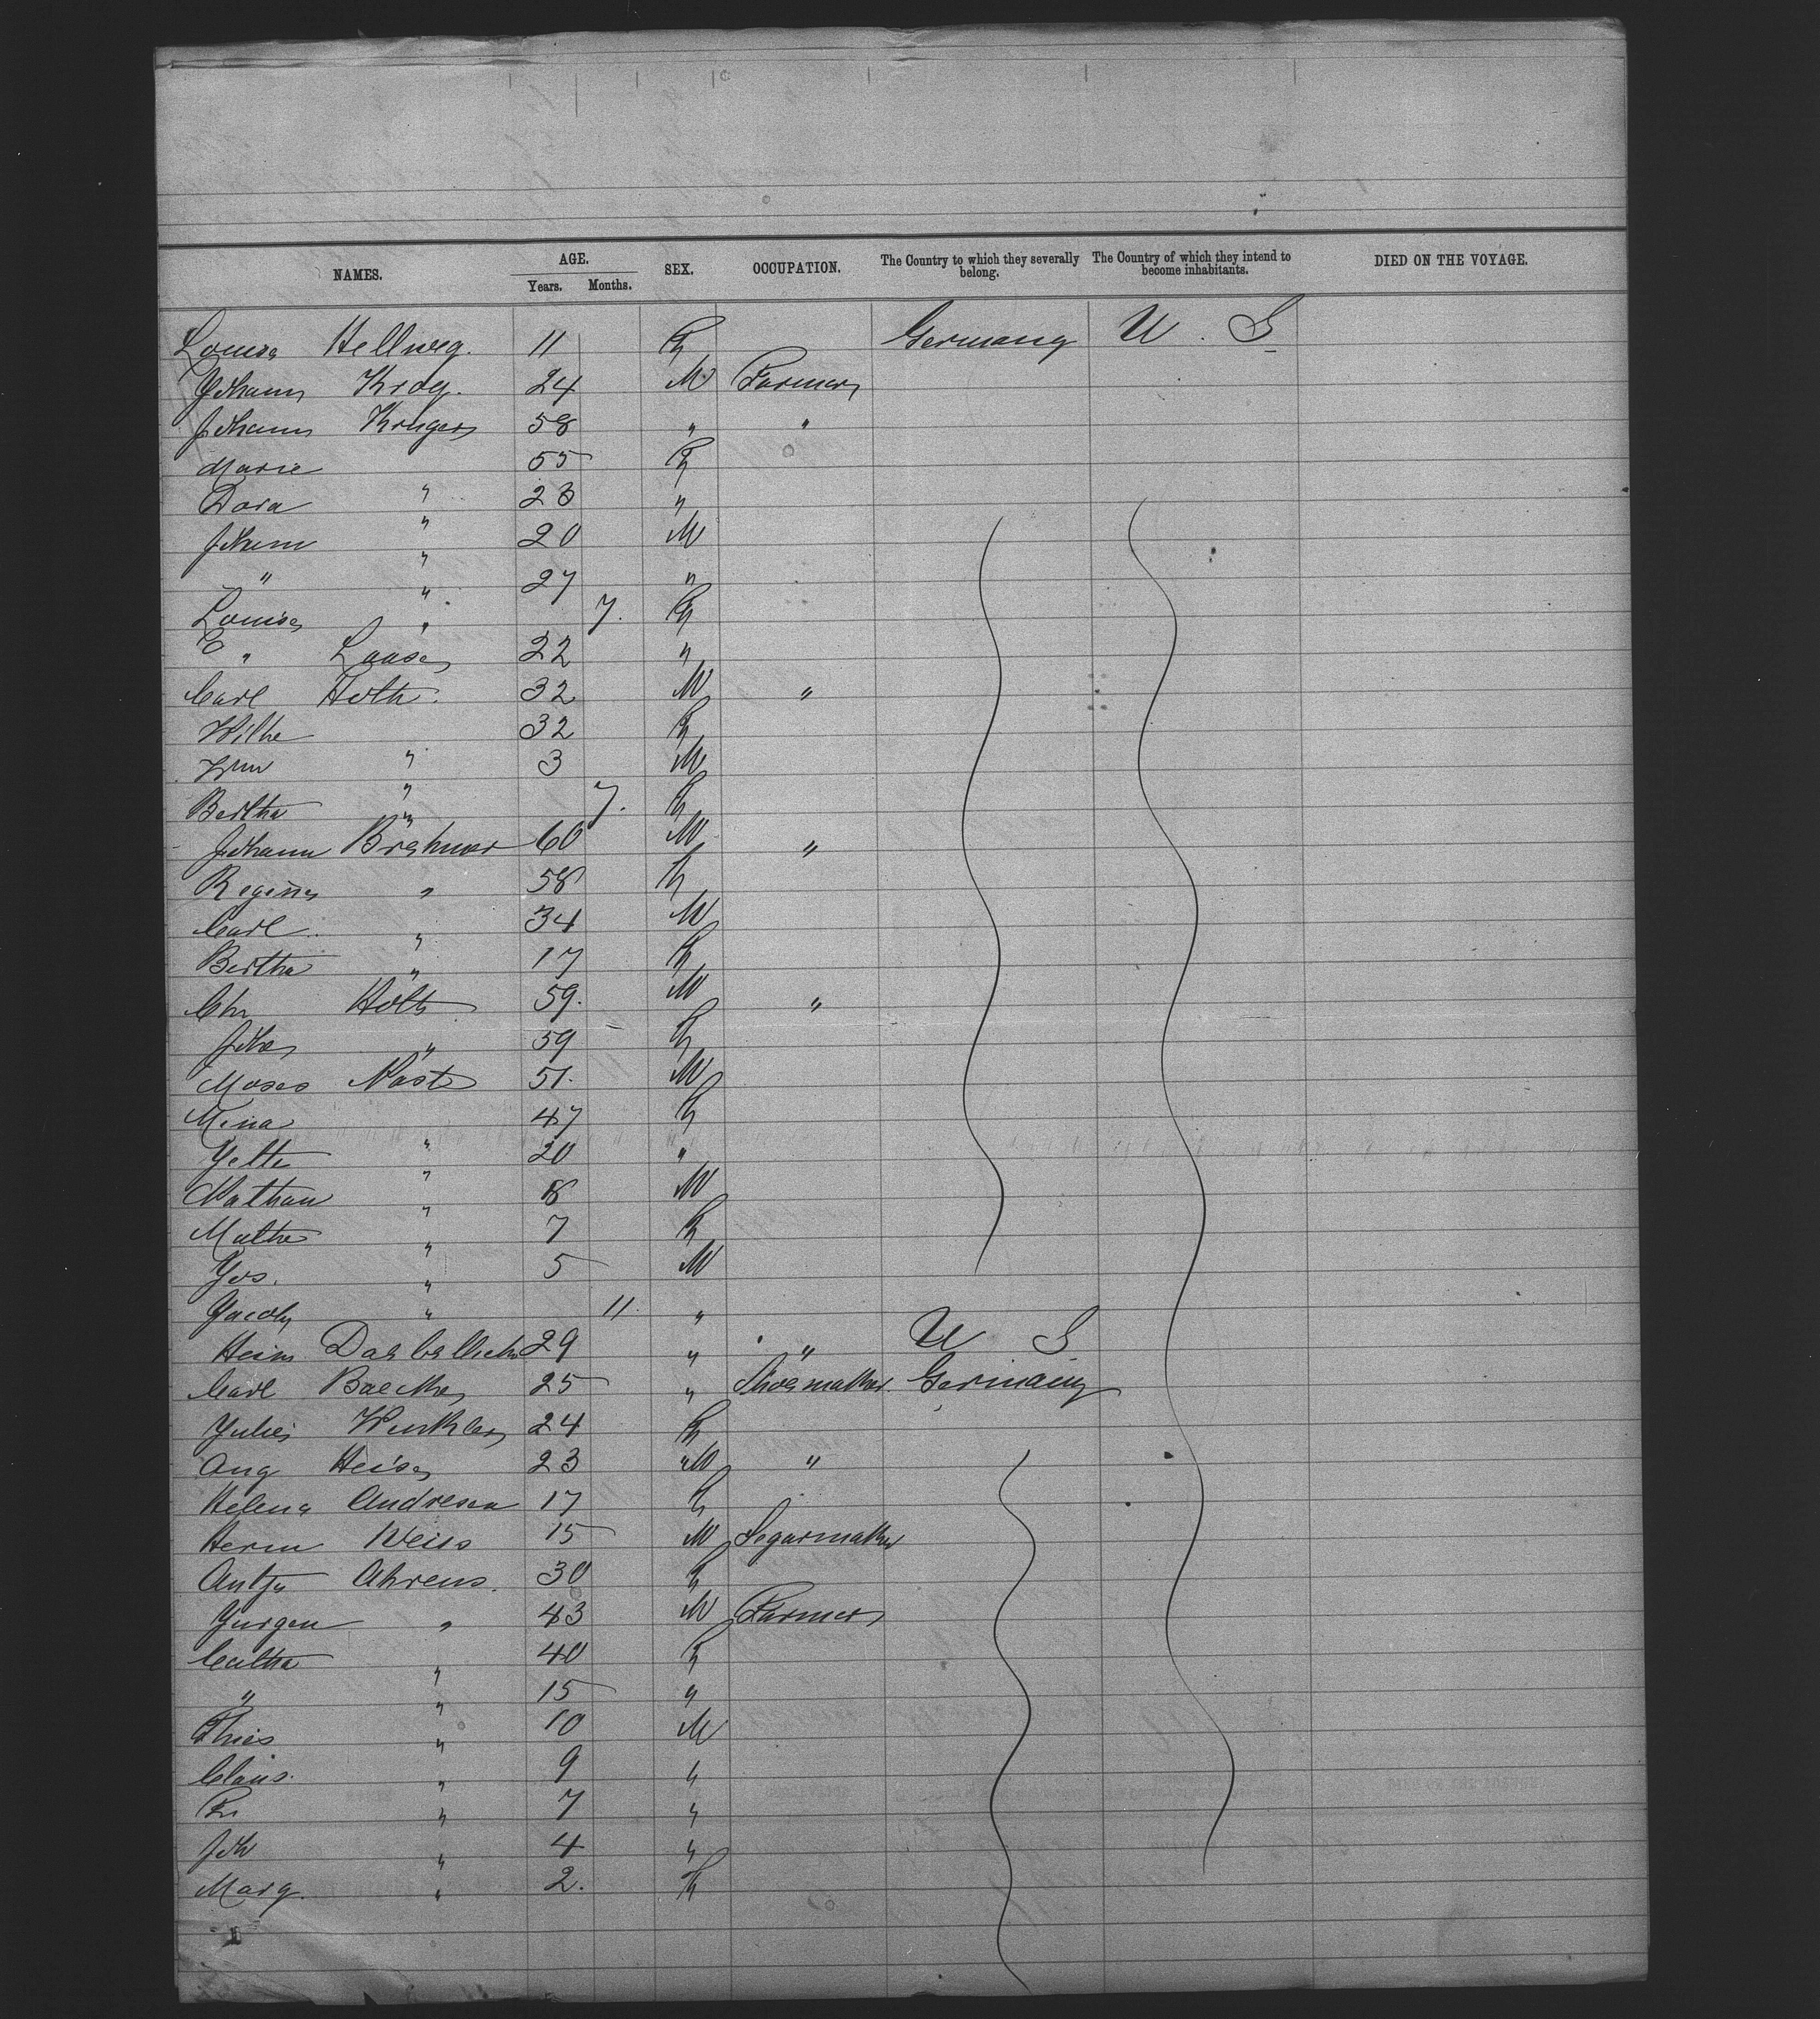 NAMES. AGE. SEX. OCCUPATION. The Country to which they severally belong. The Country of which they intend to become inhabitants. DIED ON THE VOYAGE.
Years. Months.
Louise Hellweg. 11 F Germany U. S
Johann Krog. 24 M Farmer
Johann Kruger 58 " "
Marie " 55 F
Dora " 23 "
Johann " 20 M
" " 27 "
Louise " 7. F
E " Laase 22 "
Carl Hoth. 32 M "
Wilhe " 32 F
Wm " 3 M
Bertha " 7. F
Johann Brehmer 60 M "
Regina " 58 F
Carl " 34 M
Bertha " 17 F
Chr Holtz 59. M "
Joha " 59 F
Moses Nast 51. M
Mina " 47 F
Yette " 20 "
Nathan " 8 M
Malhe " 7 F
Jos. " 5 M
Jacob " 11. "
Heinr. 29 " " U S
Carl Baecker 25 " Shoemaker. Germany
Julie Winkler 24 F
Aug Heise 23 M "
Helena Andresen 17 F
Herm Weiss 15 M Segarmaker
Antje Ahrens. 30 F
Jurgen " 43 M Farmer
Catha " 40 F
" " 15 "
Thies " 10 M
Claus. " 9 "
Fr " 7 "
Joh " 4 "
Marg. " 2. F